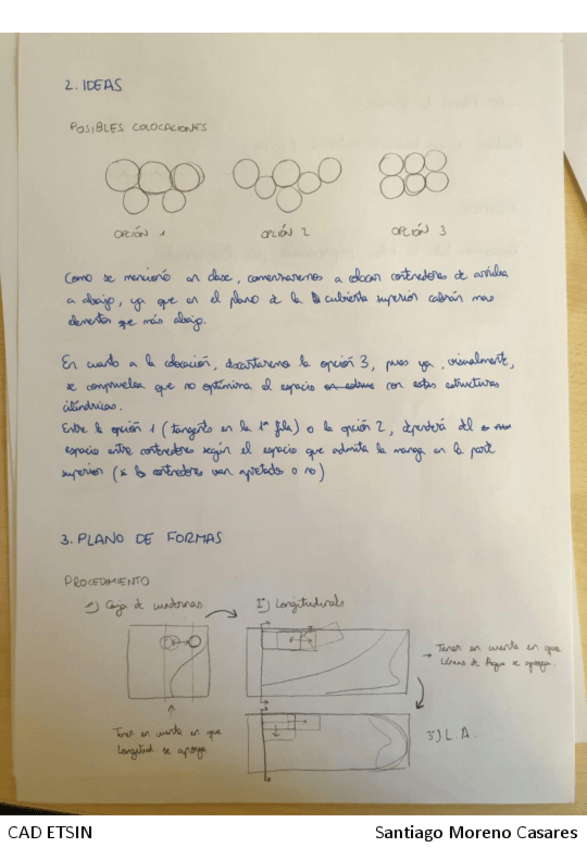 2. IDEAS
POSIBLES COLOCACIONES
OPCIÓN 1
OPCIÓN 2
OPCIÓN 3
Como se mencionó en clase, comenzaremos a colocar contenedores de arriba
a abajo, ya que en el plano de la cubierta superior cabrán mas
elementos que más abajo.
En cuanto a la colocación, descartaremos la opción 3, pues ya, visualmente,
se comprueba que no optimiza el espacio con estas estructuras
cilíndricas.
Entre la opción 1 (tangentes en la 1ª fila) o la opción 2, dependerá del
espacio entre contenedores según el espacio que admita la manga en la parte
superior (si los contenedores van apretados o no)
3. PLANO DE FORMAS
PROCEDIMIENTO
1º) Caja de cuadernas
2º) Longitudinales
Tener en cuenta en que
Líneas de Agua se apoya.
Tener en cuenta en que
Longitud se apoya
3º) L.A.
CAD ETSIN
Santiago Moreno Casares